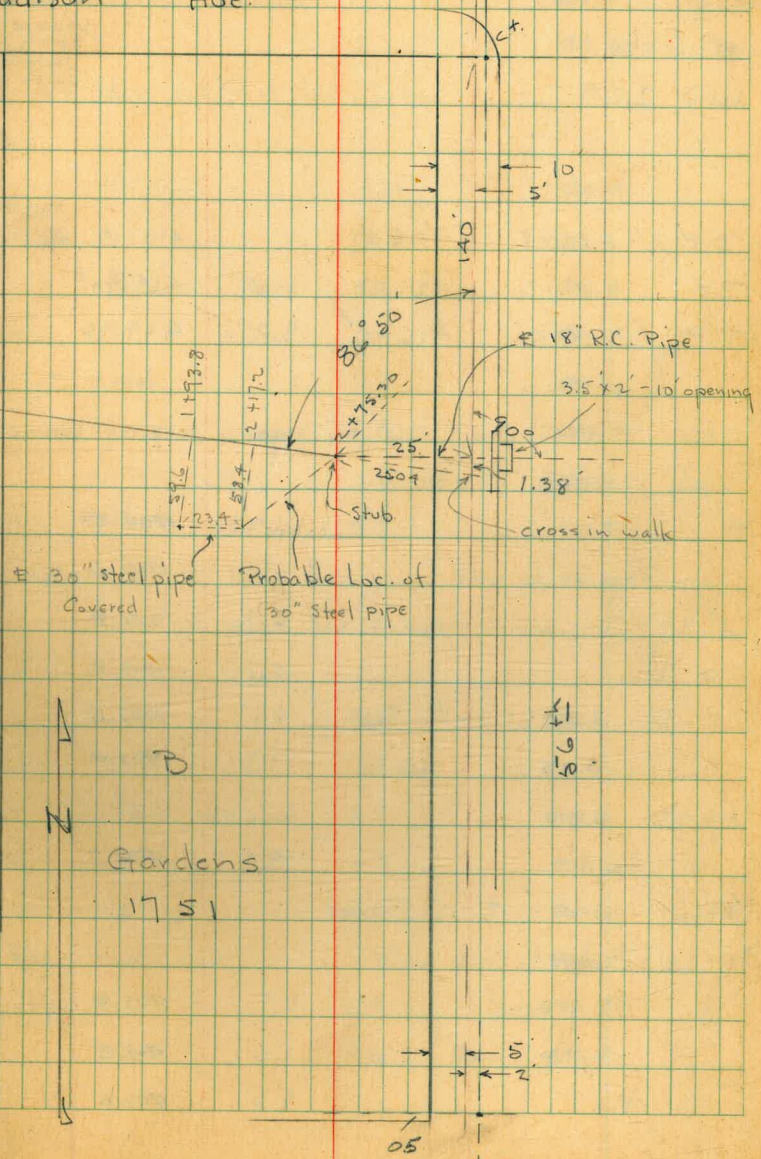 Ave.
cx.
10'
5'
140'
86° 50'
℄ 18" R.C. Pipe
3.5' x 2' - 10' opening
1+93.8
2+17.2
2+75.30
90°
25.
25.04
1.38'
59.6
58.4
23.4
Stub
cross in walk
℄ 30" steel pipe
Covered
Probable Loc. of
30" steel pipe
56 th
B
N
Gardens
1751
5'
2'
05